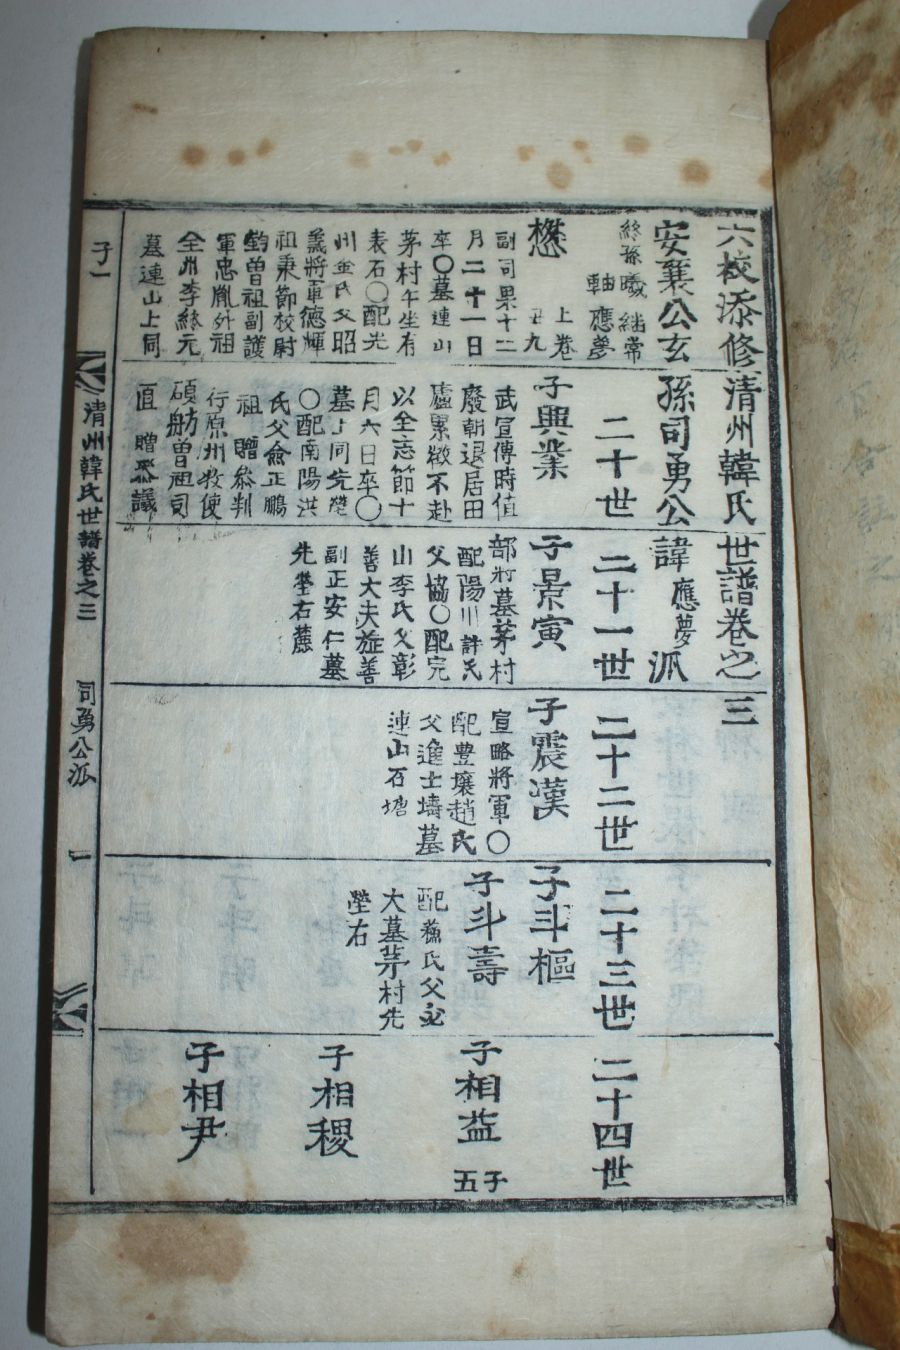 六校添修清州韓氏世譜卷之三
安襄公玄孫司勇公諱應夢派
終孫曦 繼常
軸 應夢
二十世
二十一世
二十二世
二十三世
二十四世
懋
上卷
丑九
副司果十二
月二十一日
卒〇墓連山
茅村午坐有
表石〇配光
州金氏父昭
義將軍德輝
祖秉節校尉
曾祖副護
軍忠胤外祖
全州李終元
墓連山上同
子興業
武宣傳時值
廢朝退居田
廬累徵不赴
以全志節十
月六日卒〇
墓上同先塋
〇配南陽洪
氏父兪正鵬
祖 贈參判
行原州牧使
碩舫曾祖司
直 贈參議
子景寅
部將墓茅村
配陽川許氏
父協〇配完
山李氏父彰
善大夫旌善
副正安仁墓
先塋右麓
子震漢
宣略將軍〇
配豊壤趙氏
父進士壔墓
連山石塘
子斗樞
子斗壽
配蘇氏父必
大墓茅村先
塋右
子相益
子五
子相稷
子相尹
子一
清州韓氏世譜卷之三
司勇公派
一